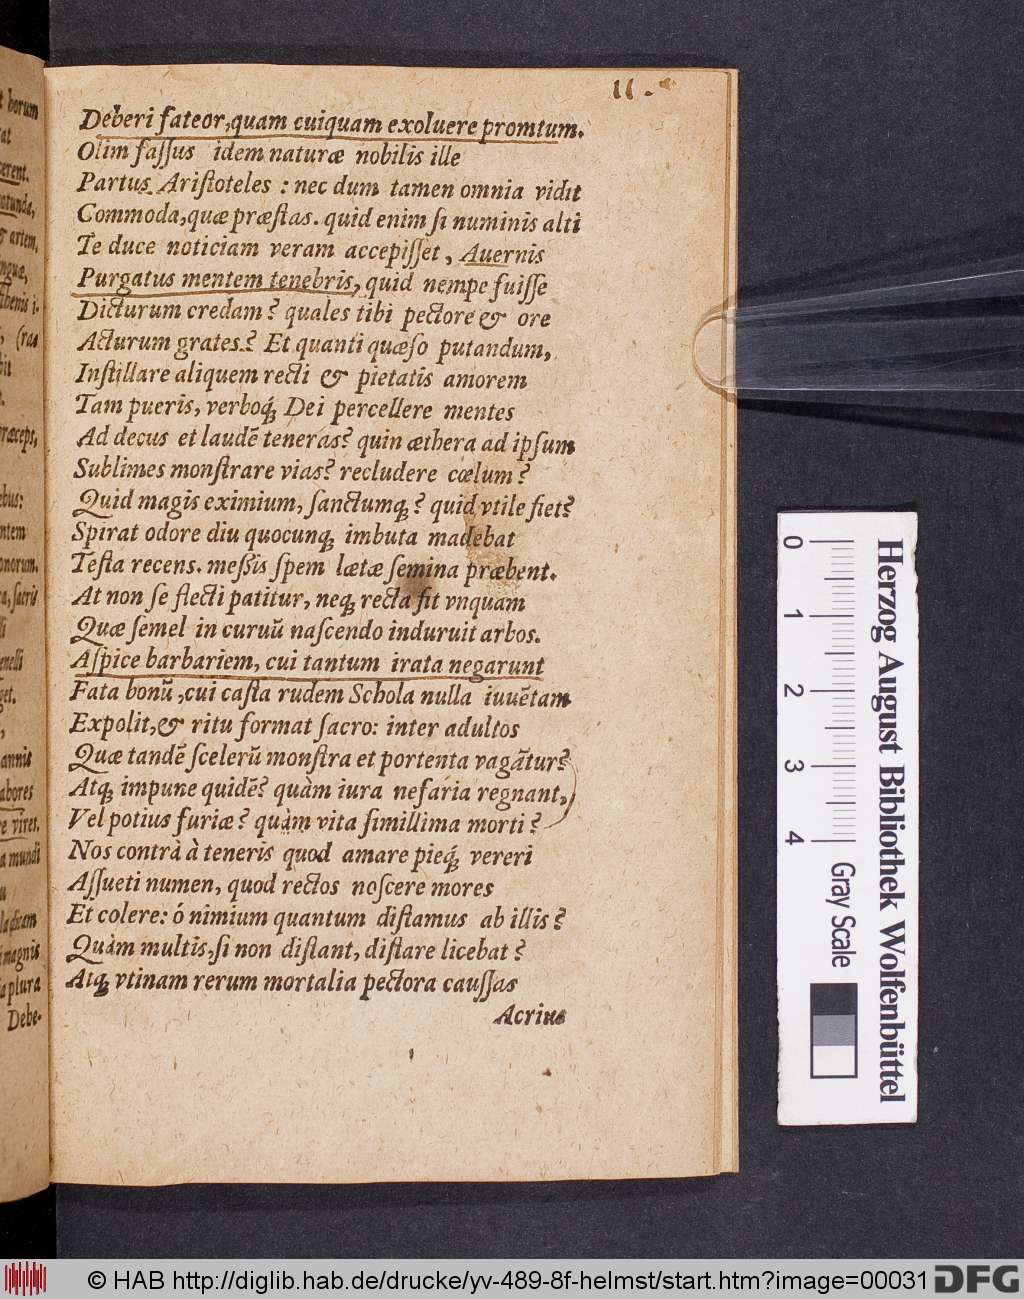 11.
Deberi fateor, quam cuiquam exoluere promtum.
Olim faſſus idem naturæ nobilis ille
Partus Ariſtoteles : nec dum tamen omnia vidit
Commoda, quæ præſtas. quid enim ſi numinis alti
Te duce noticiam veram accepiſſet, Auernis
Purgatus mentem tenebris, quid nempe fuiſſe
Dicturum credam? quales tibi pectore & ore
Acturum grates? Et quanti quæſo putandum,
Inſtillare aliquem recti & pietatis amorem
Tam pueris, verboq́; Dei percellere mentes
Ad decus et laudē teneras? quin æthera ad ipſum
Sublimes monſtrare vias? recludere cœlum?
Quid magis eximium, ſanctumq;? quid vtile fiet?
Spirat odore diu quocunq; imbuta madebat
Teſta recens. meſsis ſpem lætæ ſemina præbent.
At non ſe flecti patitur, neq; recta fit vnquam
Quæ ſemel in curuū naſcendo induruit arbos.
Aſpice barbariem, cui tantum irata negarunt
Fata bonū, cui caſta rudem Schola nulla iuuētam
Expolit, & ritu format ſacro: inter adultos
Quæ tandē ſcelerū monſtra et portenta vagātur?
Atq; impune quidē? quàm iura nefaria regnant,
Vel potius furiæ? quàm vita ſimillima morti?
Nos contrà à teneris quod amare pieq́; vereri
Aſſueti numen, quod rectos noſcere mores
Et colere: ó nimium quantum diſtamus ab illis?
Quàm multis, ſi non diſtant, diſtare licebat?
Atq; vtinam rerum mortalia pectora cauſſas
Acrius
horum
artem,
præceps,
annis
mundi
magnis
plura
Debe-
0 1 2 3 4
Herzog August Bibliothek Wolfenbüttel
Gray Scale
© HAB http://diglib.hab.de/drucke/yv-489-8f-helmst/start.htm?image=00031
DFG